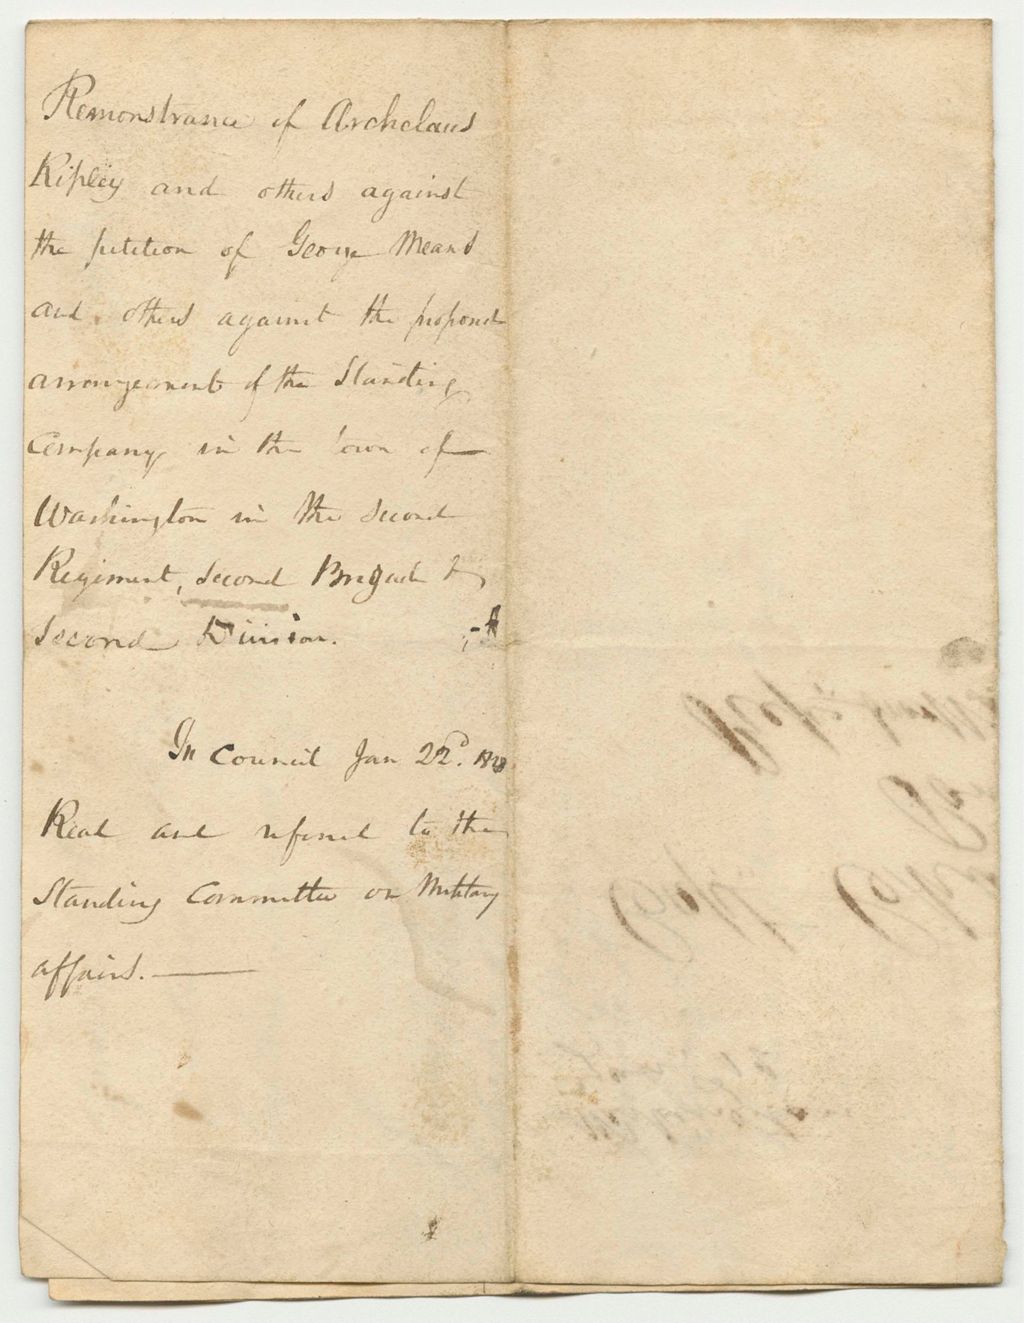 Remonstrance of Archelaus
Ripley and others against
the petition of George Means
and others against the proposed
arrangement of the Standing
Company in the town of
Washington in the second
Regiment, Second Brigade &
Second Division.
In Council Jan 22d.
Read and referred to the
Standing Committee on Military
affairs.